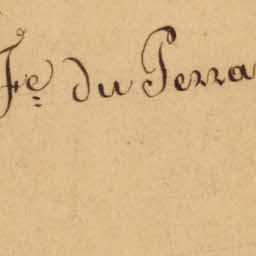 Fe. du Perra